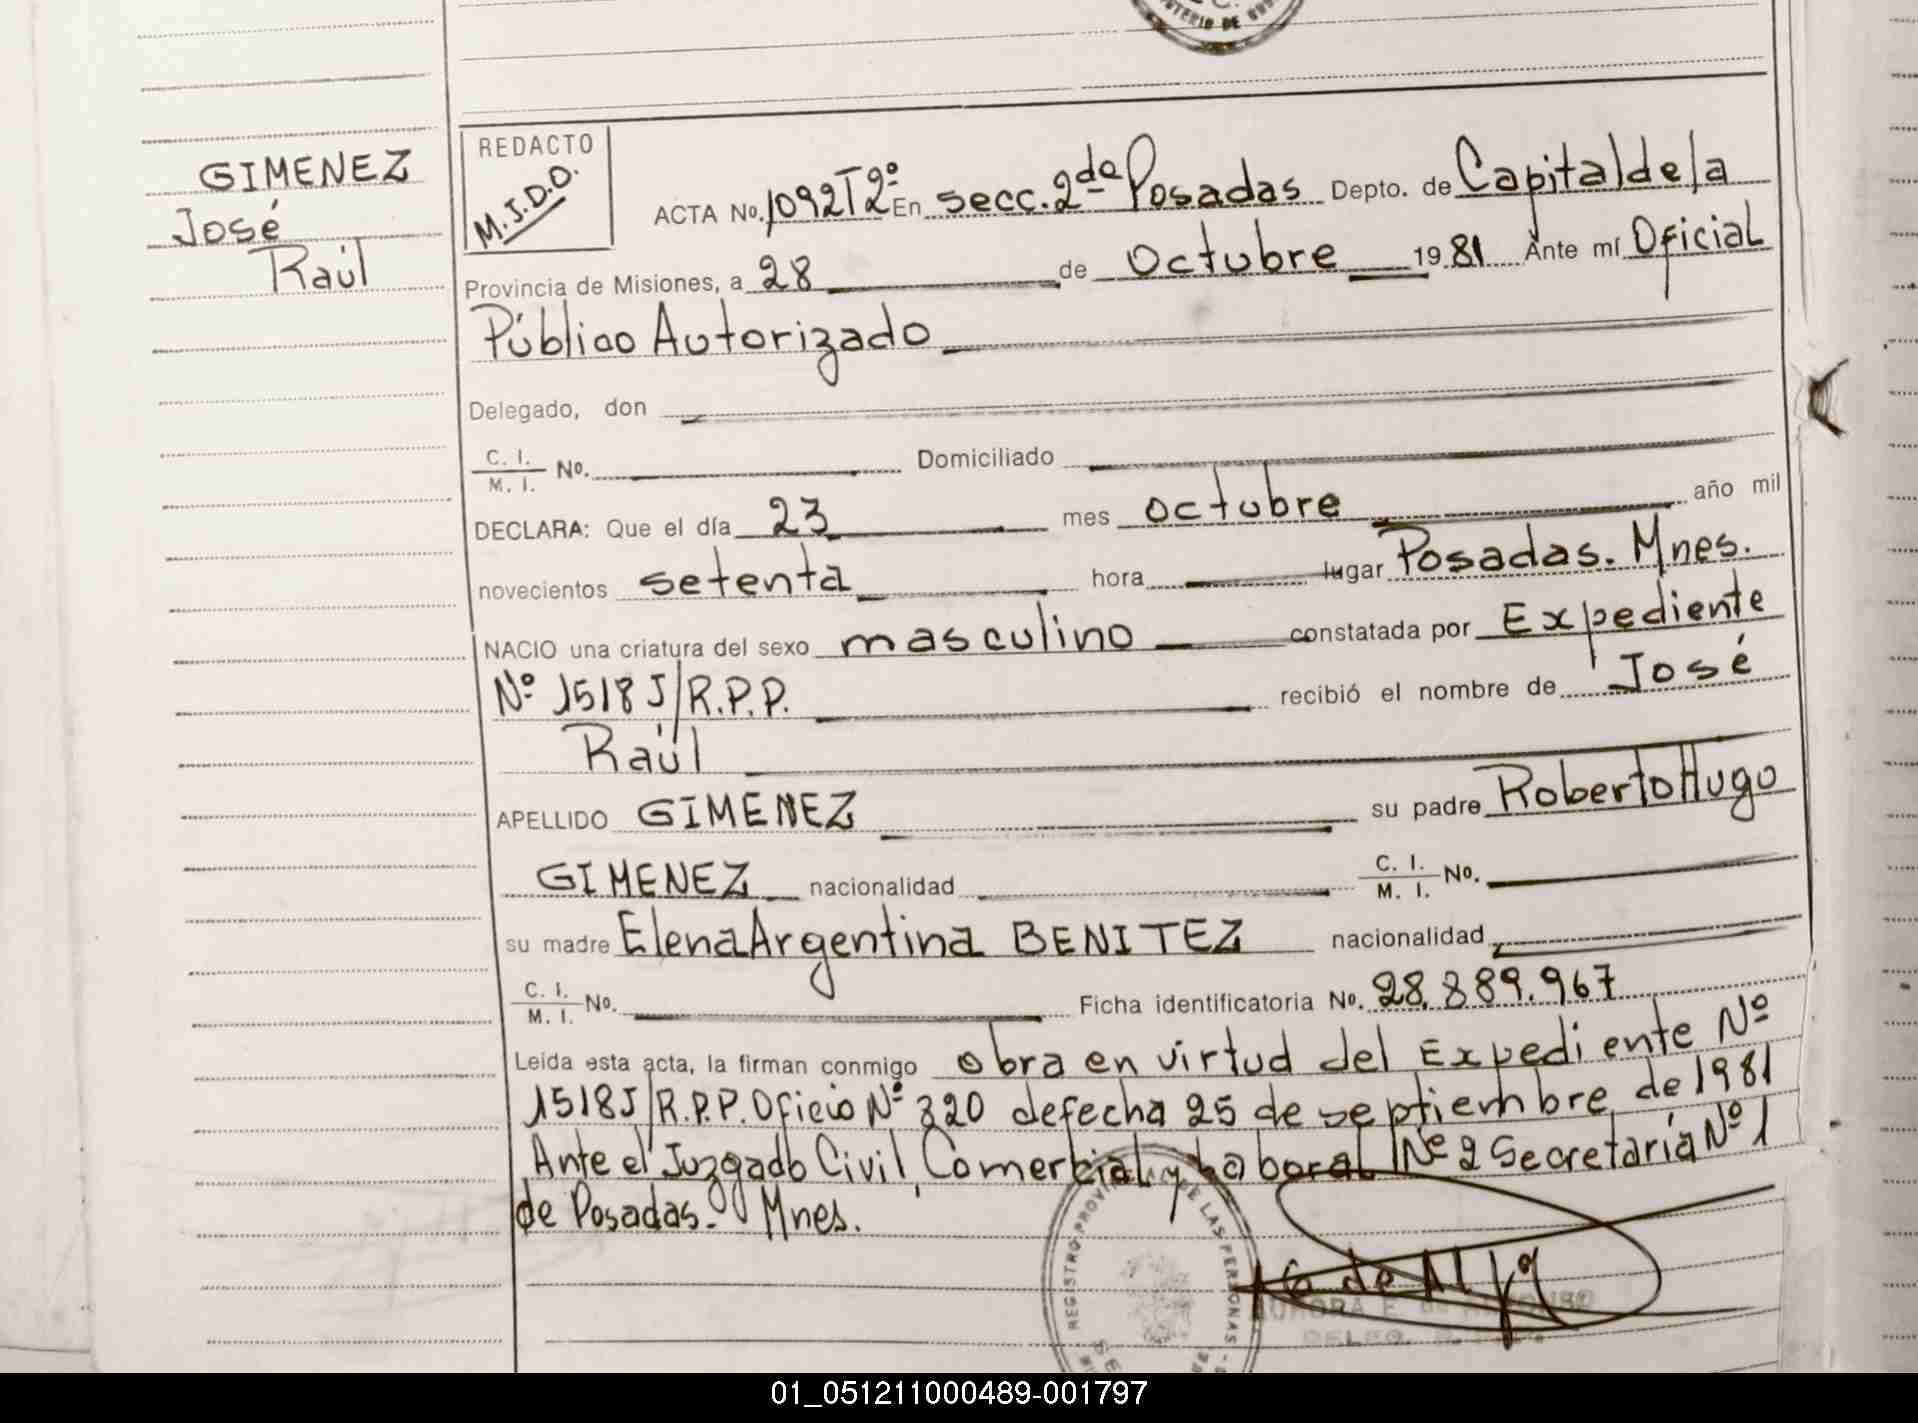 TERIO DE
GIMENEZ
José
Raúl
REDACTO
M.J.D.O.
ACTA No. 1092T2º En secc. 2da Posadas Depto. de Capital de la
Provincia de Misiones, a 28 de Octubre 1981 Ante mí Oficial
Público Autorizado
Delegado, don
C. I. / M. I. No. Domiciliado
DECLARA: Que el día 23 mes octubre año mil
novecientos setenta hora lugar Posadas. Mnes.
NACIO una criatura del sexo masculino constatada por Expediente
Nº 1518J/R.P.P. recibió el nombre de José
Raúl
APELLIDO GIMENEZ su padre Roberto Hugo
GIMENEZ nacionalidad C. I. / M. I. No.
su madre Elena Argentina BENITEZ nacionalidad
C. I. / M. I. No. Ficha identificatoria No. 28.889.967
Leída esta acta, la firman conmigo obra en virtud del Expediente Nº
1518J/R.P.P. Oficio Nº 320 de fecha 25 de septiembre de 1981
Ante el Juzgado Civil, Comercial y Laboral Nº 2 Secretaría Nº 1
de Posadas. Mnes.
REGISTRO PROVINCIAL DE LAS PERSONAS
AURORA E. de
01_051211000489-001797